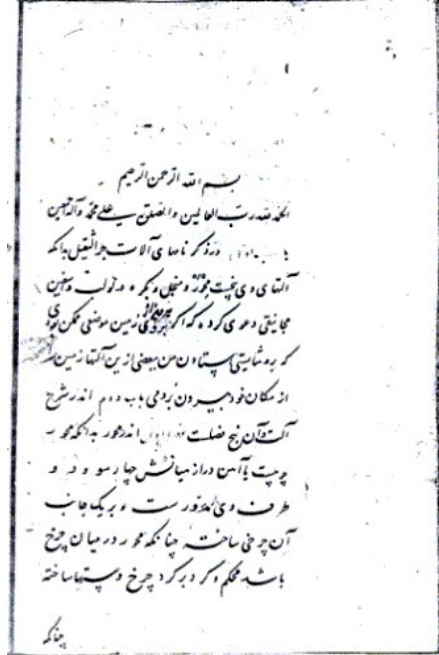 بسم الله الرحمن الرحیم
الحمد لله رب العالمین و الصلوة علی محمد و آله اجمعین
باب اول در ذکر نامهای آلات جر الثقیل بدانکه
آلتهای وی پنج محور و مخل و بکره و لولب و اسفین
مجانیقی دعوی کرده که اگر بیرون از زمین موضعی ممکن بودی
که بشایستی ایستادن من ببعضی ازین آلتها زمین را
از مکان خود بیرون بردمی باب دوم اندر شرح
آلت و آن پنج فصلست اندر محور بدانکه محور
چوبیست یا آهن دراز میانش چارسو و دو
طرف وی مدورست و بر یک جانب
آن چرخی ساخته چنانکه محور در میان چرخ
باشد محکم و گرد بر گرد چرخ دستها ساخته
چنانکه